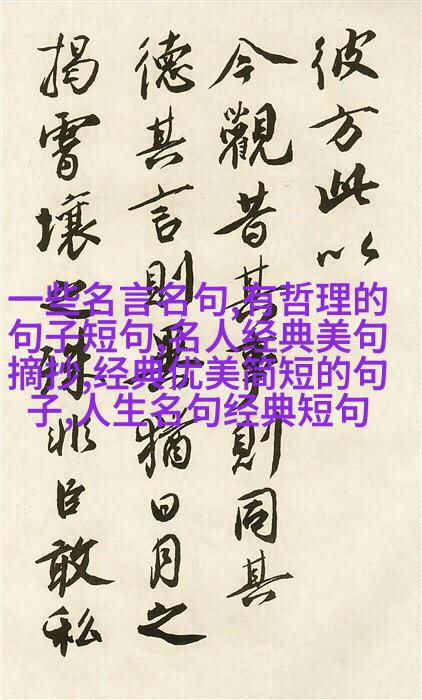 彼方此以
今觀昔其事則同其
德其言則異猶日月之
揭霄壤之殊非臣敢私
一些名言名句,有哲理的
句子短句,名人经典美句
摘抄,经典优美简短的句
子,人生名句经典短句